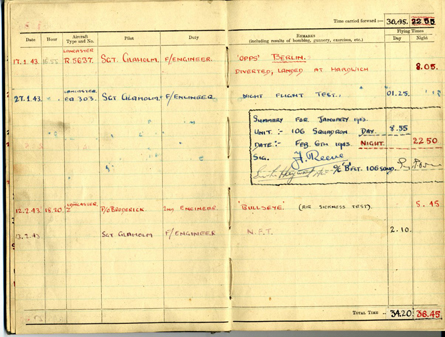 Time carried forward :— 30.45. 22.55
Date Hour Aircraft Type and No. Pilot Duty REMARKS (including results of bombing, gunnery, exercises, etc.) Flying Times Day Night
17.1.43 LANCASTER R.5637. SGT F/ENGINEER. "OPPS" BERLIN.
DIVERTED, LANDED AT HARDWICH 8.05.
27.1.43. LANCASTER 303. SGT F/ENGINEER. NIGHT FLIGHT TEST. 01.25.
SUMMARY FOR JANUARY 1943.
UNIT :- 106 SQUADRON DAY. 8.55
DATE :- FEB. 6TH 1943. NIGHT. 22.50
SIG. Reeve
106 SQDN.
12.2.43 18.20. LANCASTER P/O BRODERICK. 2ND ENGINEER. "BULLSEYE" (AIR SICKNESS TEST). 5.45
13.2.43 SGT F/ENGINEER. N.F.T. 2.10.
TOTAL TIME ... 34.20 36.45.